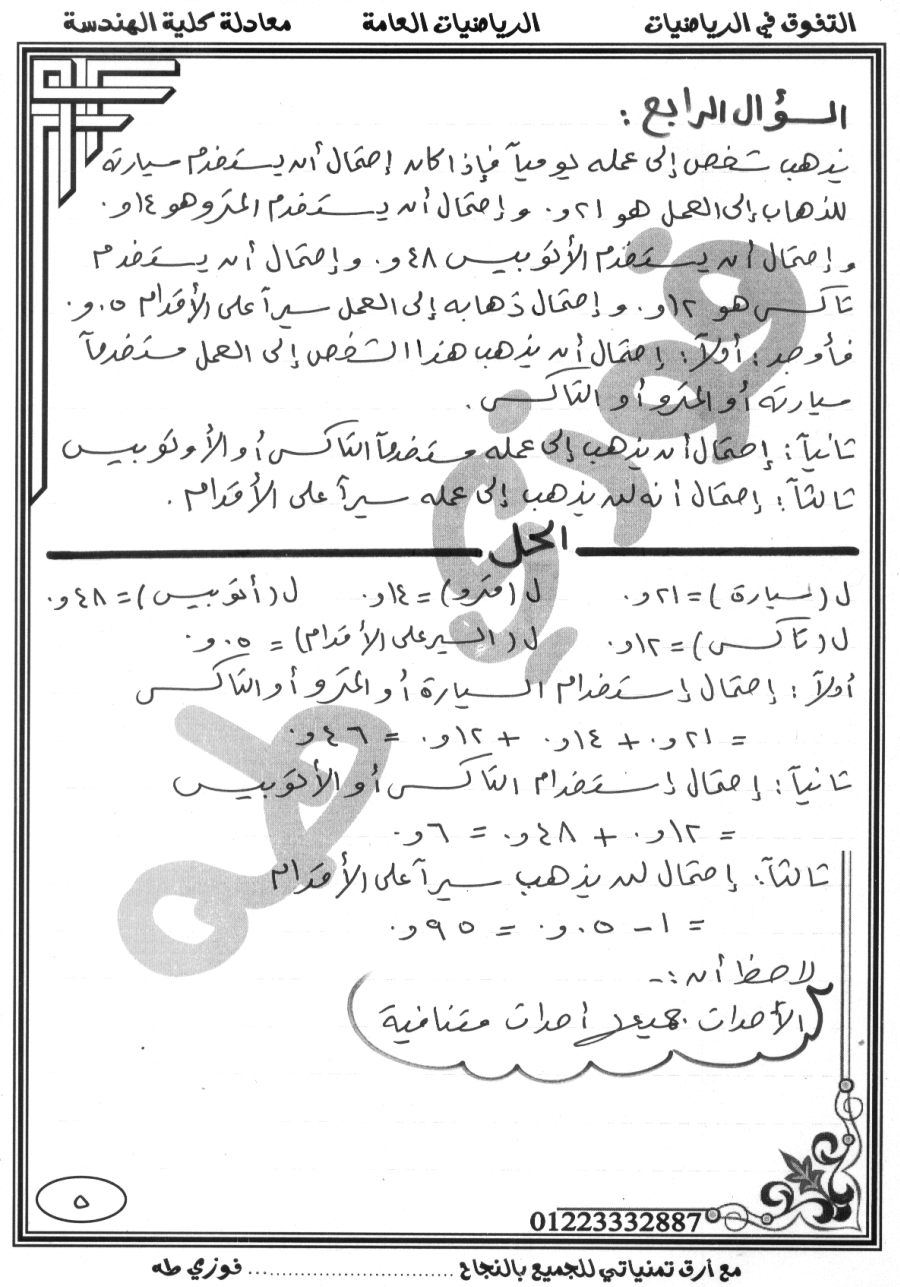 التفوق في الرياضيات الرياضيات العامة معادلة كلية الهندسة
السؤال الرابع :
يذهب شخص إلى عمله يومياً فإذا كان إحتمال أن يستخدم سيارته
للذهاب إلى العمل هو ٢١و٠ وإحتمال أن يستخدم المترو هو ١٤و٠
وإحتمال أن يستخدم الأتوبيس ٤٨و٠ وإحتمال أن يستخدم
تاكس هو ١٢و٠ وإحتمال ذهابه إلى العمل سيراً على الأقدام ٠٥و٠
فأوجد : أولاً : إحتمال أن يذهب هذا الشخص إلى العمل مستخدماً
سيارته أو المترو أو التاكس .
ثانياً : إحتمال أن يذهب إلى عمله مستخدماً التاكس أو الأوتوبيس
ثالثاً : إحتمال أنه لن يذهب إلى عمله سيراً على الأقدام .
الحل
ل (سيارة) = ٢١و٠ ل (مترو) = ١٤و٠ ل (أتوبيس) = ٤٨و٠
ل (تاكس) = ١٢و٠ ل (السير على الأقدام) = ٠٥و٠
أولاً : إحتمال إستخدام السيارة أو المترو أو التاكس
= ٢١و٠ + ١٤و٠ + ١٢و٠ = ٤٦و٠
ثانياً : إحتمال إستخدام التاكس أو الأتوبيس
= ١٢و٠ + ٤٨و٠ = ٦و٠
ثالثاً : إحتمال لن يذهب سيراً على الأقدام
= ١ - ٠٥و٠ = ٩٥و٠
لاحظ أن :-
الأحداث جميعها أحداث متنافية
فوزي طه
٥
01223332887
مع أرق تمنياتي للجميع بالنجاح .............................. فوزي طه